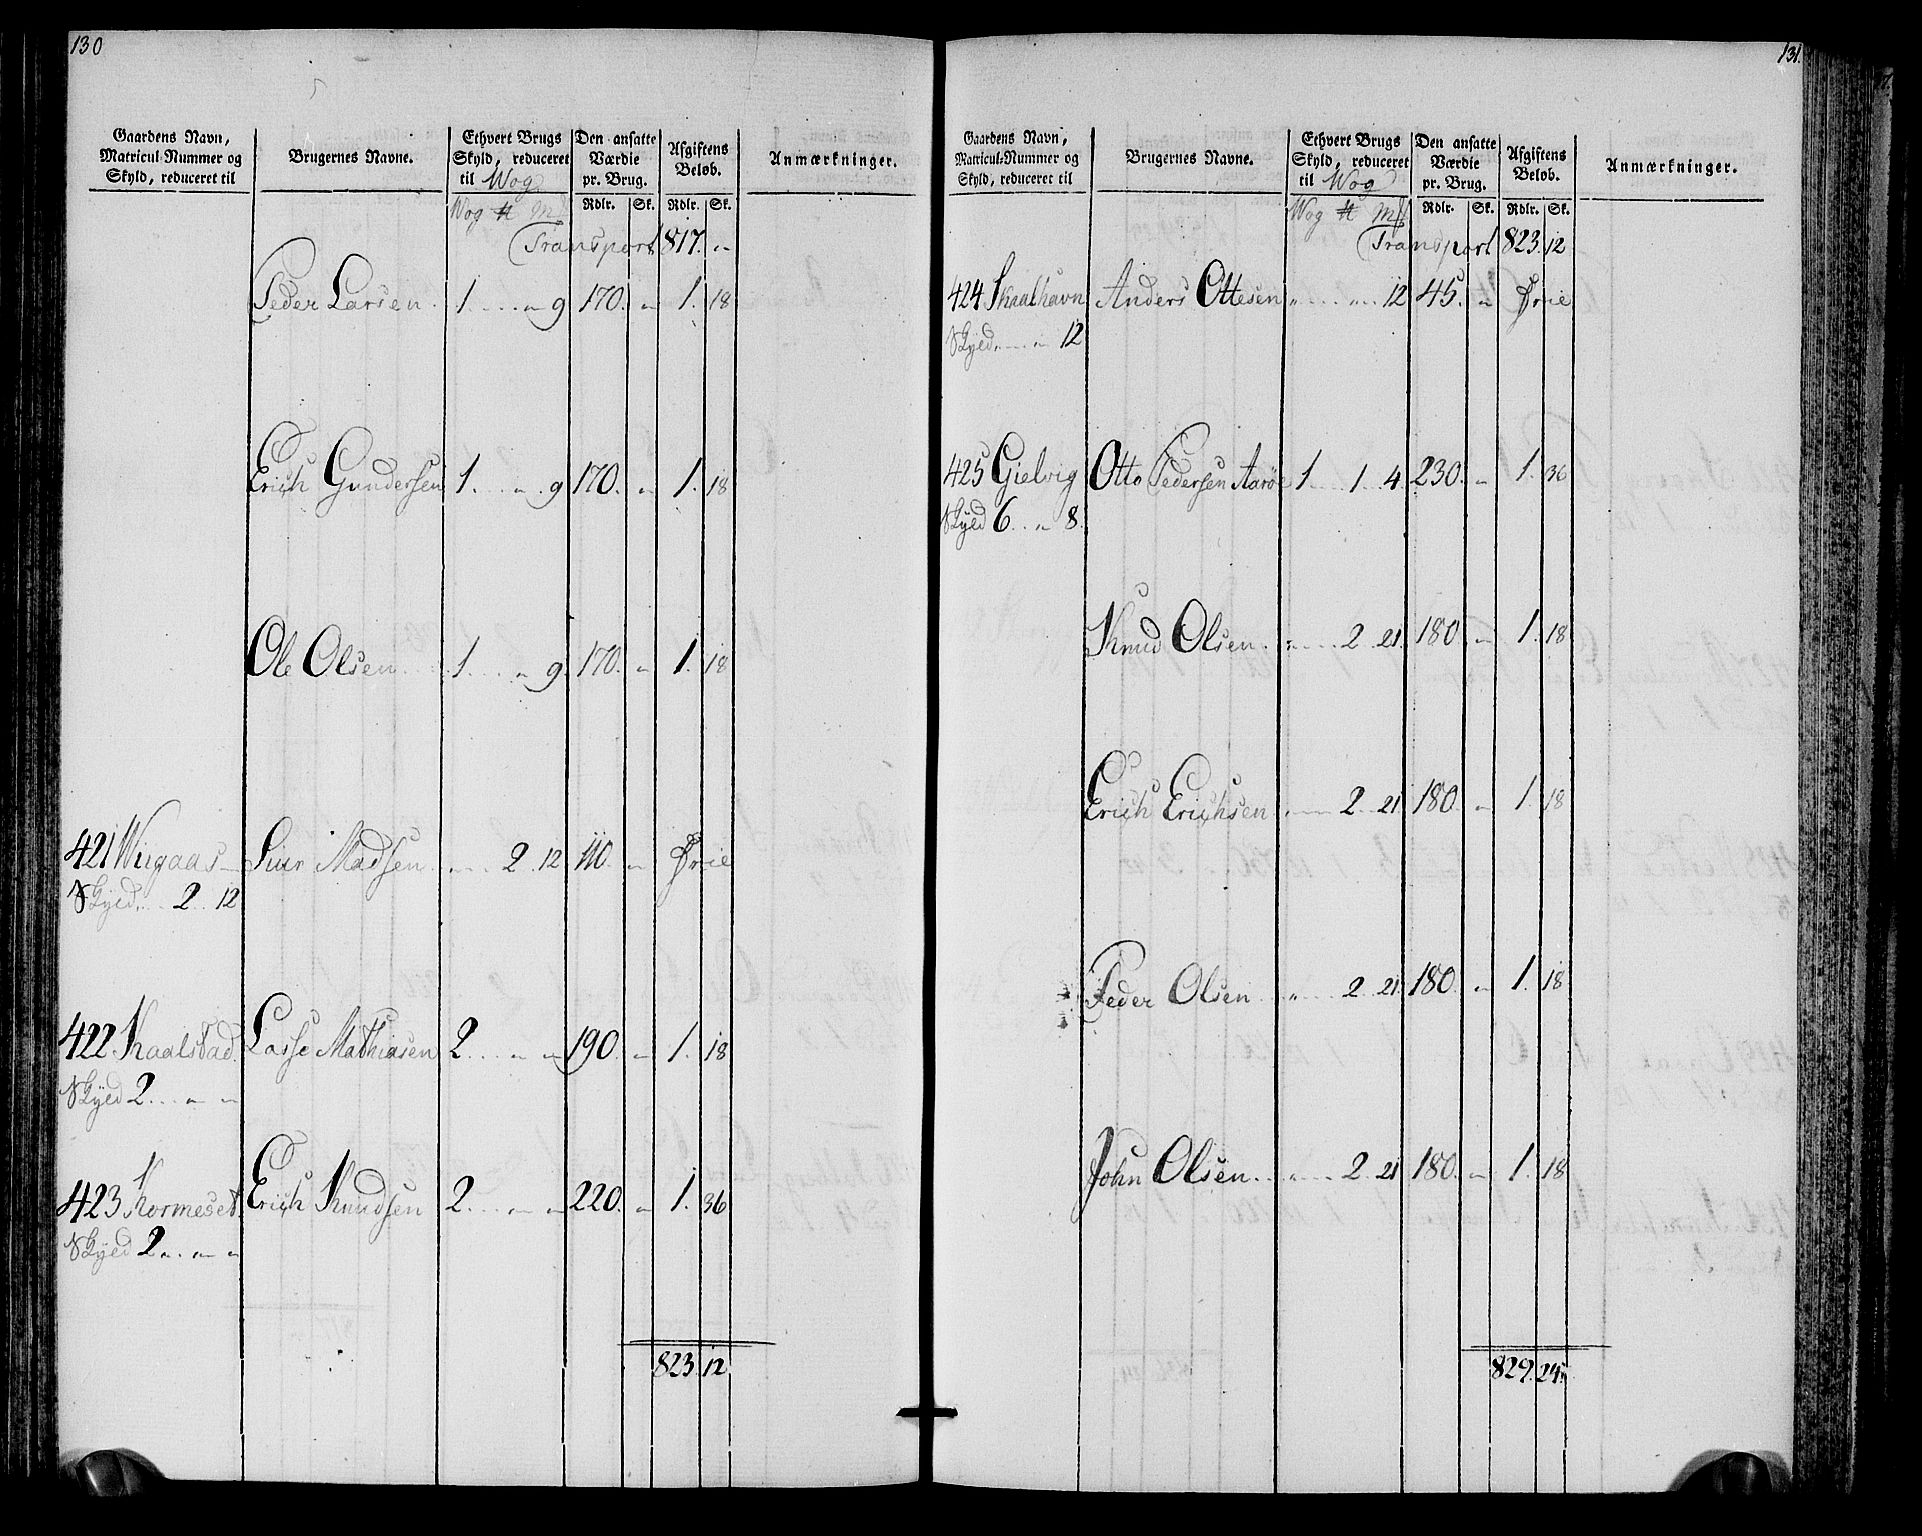 130
Gaardens Navn, Matricul-Nummer og Skyld, reduceret til
Brugernes Navne.
Ethvert Brugs Skyld, reduceret til Wog
Den ansatte Værdie pr. Brug.
Afgiftens Beløb.
Anmærkninger.
Wog ℔ Mk Rdlr. Sk. Rdlr. Sk.
Transport 817. „
Peder Larsen. 1 . . . „ 9 170. „ 1. 18
Erich Gundersen 1 . . . „ 9 170. „ 1. 18
Ole Olsen 1 . . . „ 9. 170. „ 1. 18
421 Wiigaas Siur Madsen . . . 2 12 110. „ Frie
Skyld . . . 2 . 12
422 Kaalstad. Lasse Mathiasen 2 . . „ „ 190. „ 1. 18
Skyld 2 . . „ „
423 Kormeset. Erich Knudsen 2 . . . „ 220. „ 1. 36
Skyld 2 „ „ „
823. 12
131.
Gaardens Navn, Matricul-Nummer og Skyld, reduceret til
Brugernes Navne.
Ethvert Brugs Skyld, reduceret til Wog
Den ansatte Værdie pr. Brug.
Afgiftens Beløb.
Anmærkninger.
Wog ℔ Mk Rdlr. Sk. Rdlr. Sk.
Transport 823. 12
424 Skaalhavn Anders Ottesen „ . . „ . 12 45. „ Frie
Skyld . . „ 12
425 Gielvig Otto Pedersen Aarøe 1 . . 1 . 4. 230. „ 1. 36
Skyld 6 . . „ 8.
Knud Olsen. „ . . . 2 . 21. 180 „ 1. 18
Erich Erichsen . . . 2 . 21 180. „ 1. 18
Peder Olsen „ . . . 2 . 21. 180. „ 1. 18
John Olsen. „ . . . 2 . 21 180. „ 1. 18
829. 24.